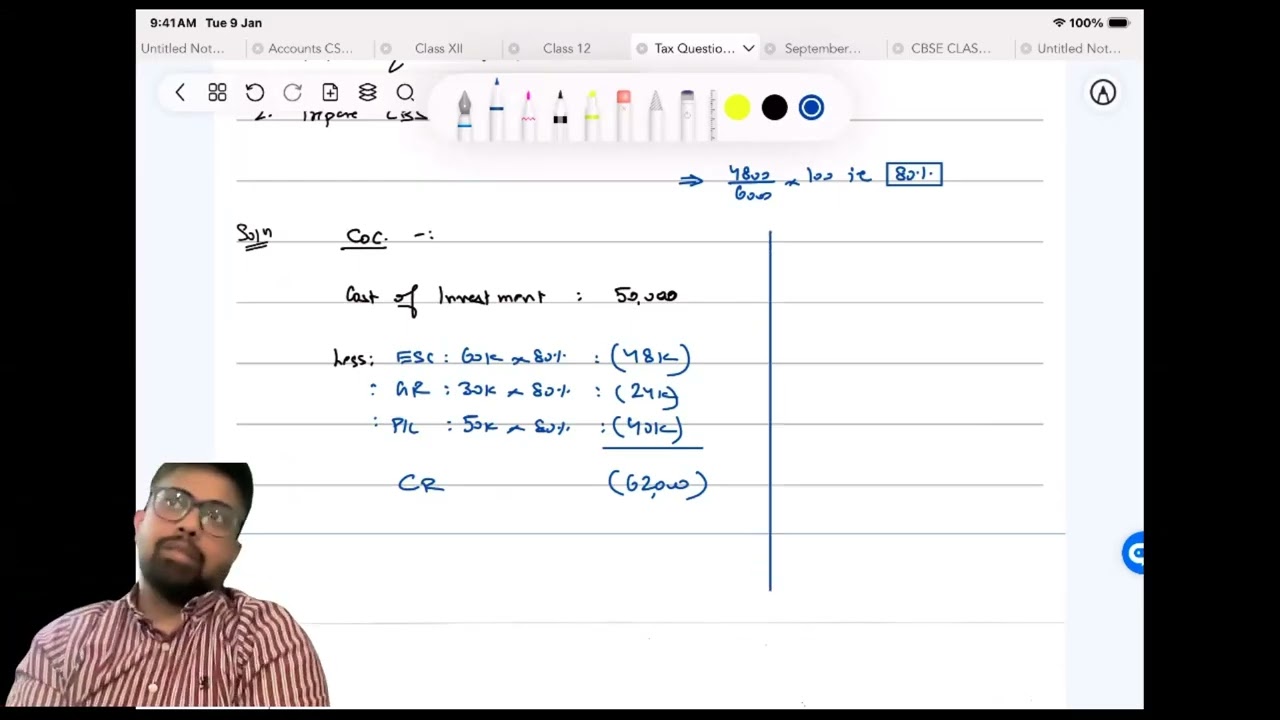 9:41AM Tue 9 Jan 100%
Untitled Not... Accounts CS... Class XII Class 12 Tax Questio... September... CBSE CLAS... Untitled Not...
2. Prepare CBS
⇒ 4800/6000 × 100 ie 80%
Soln COC. -:
Cost of Investment : 50,000
Less: ESC : 60K × 80% : (48K)
: GR : 30K × 80% : (24K)
: P/L : 50K × 80% : (40K)
CR (62,000)